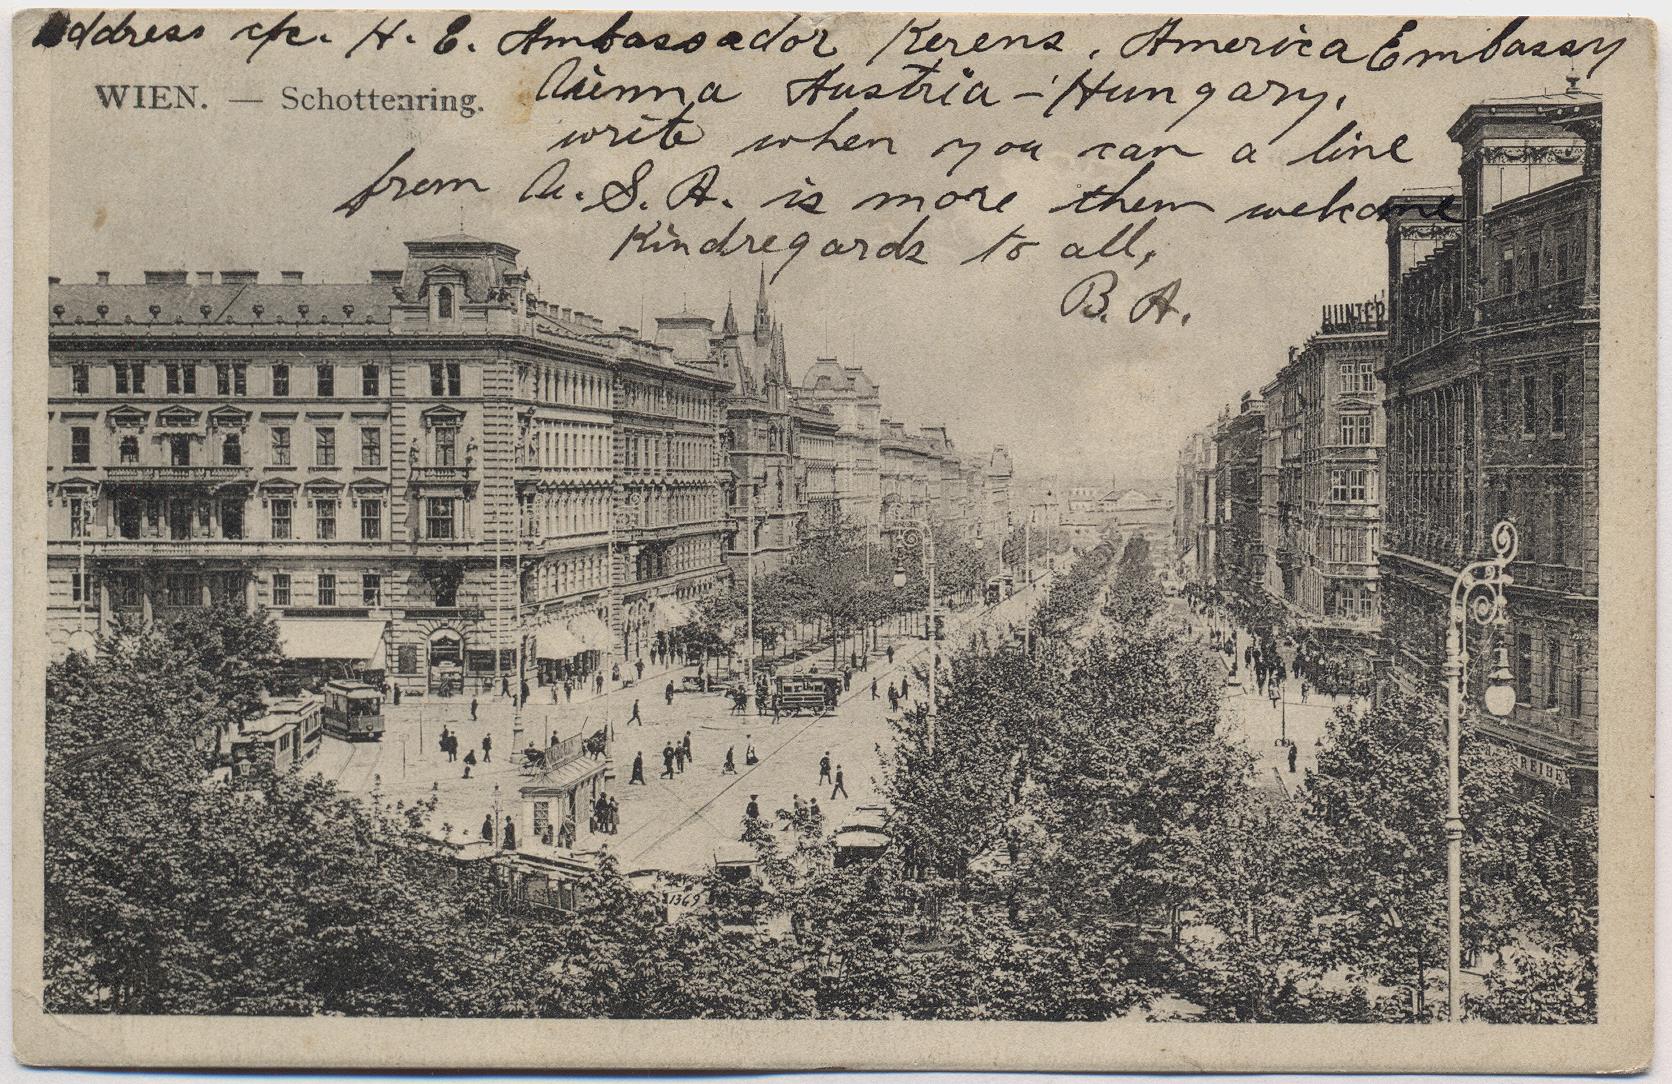 Address c/o. H. E. Ambassador Kerens, America Embassy
WIEN. — Schottenring.
Vienna Austria - Hungary,
write when you can a line
from U. S. A. is more them welcome
Kindregards to all,
B. A.
HUNTER
REIBE
1369